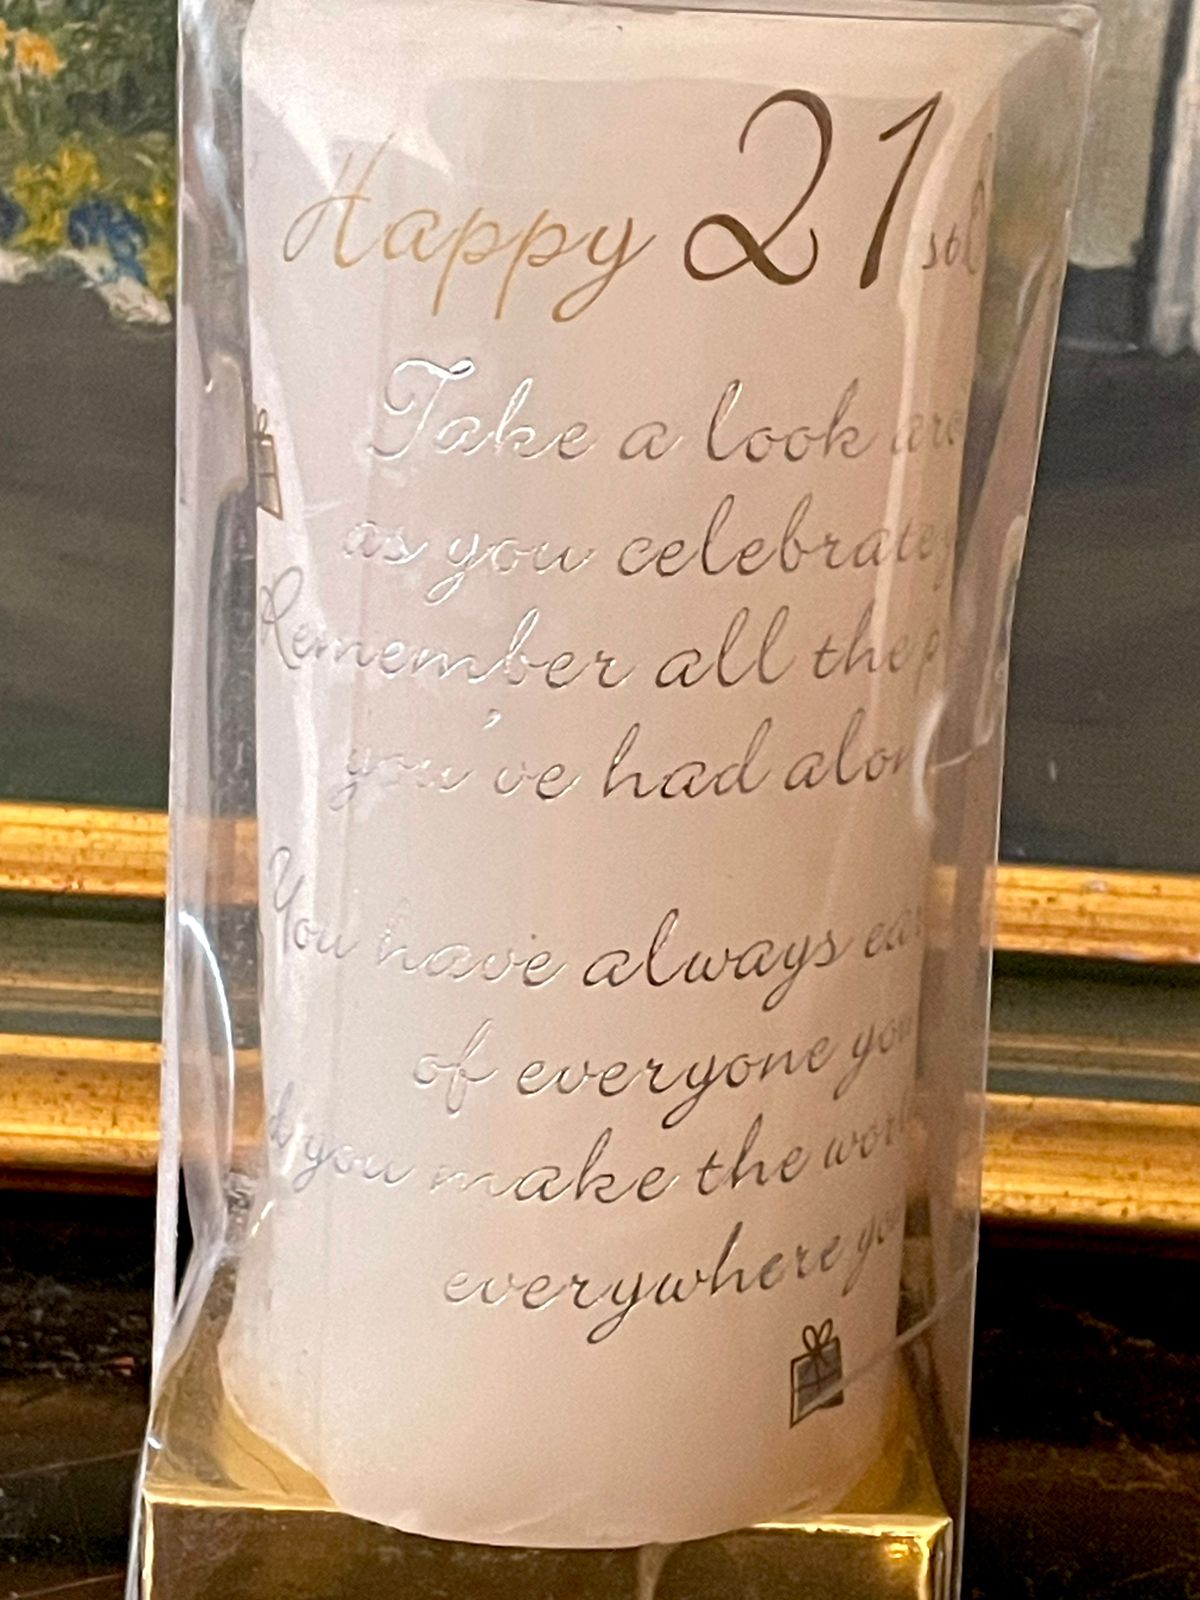 Happy 21st
Take a look
as you celebrate
Remember all the
you've had
You have always
of everyone
you make the
everywhere